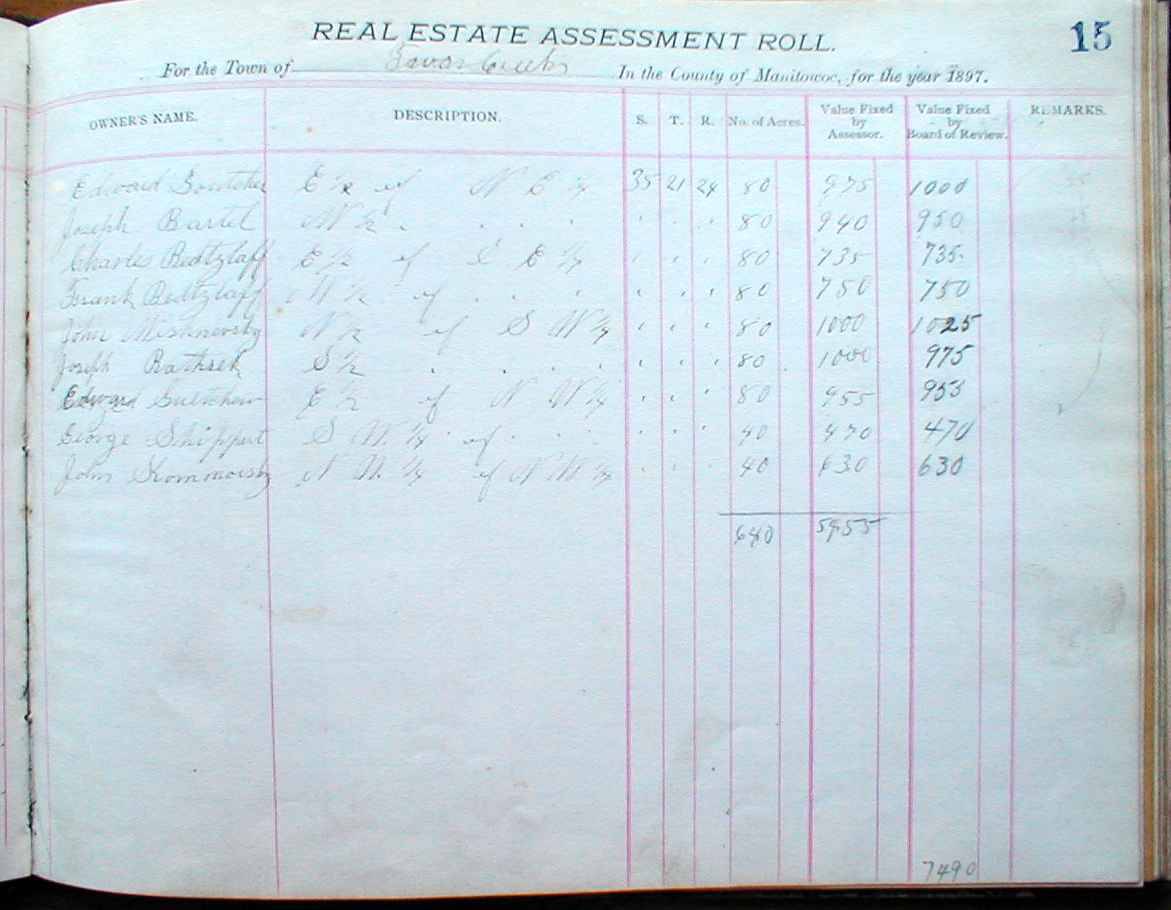 REAL ESTATE ASSESSMENT ROLL. 15
For the Town of Two Creeks In the County of Manitowoc, for the year 1897.
OWNER'S NAME. DESCRIPTION. S. T. R. No. of Acres. Value Fixed by Assessor. Value Fixed by Board of Review. REMARKS.
Edward E ½ of N E ¼ 35 21 24 80 975 1000
Joseph Bartel W ½ . . . . . . . 80 940 950
Charles Redtzlaff E ½ of S E ¼ . . . 80 735 735
Frank Redtzlaff W ½ of . . . . . . 80 750 750
John N ½ of S W ¼ . . . 80 1000 1025
Joseph Rathsek S ½ . . . . . . . 80 1000 975
Edward E ½ of N W ¼ . . . 80 955 955
George Shippert S W ¼ of . . . . . 40 470 470
John N W ¼ of N W ¼ . . . 40 630 630
640
7490